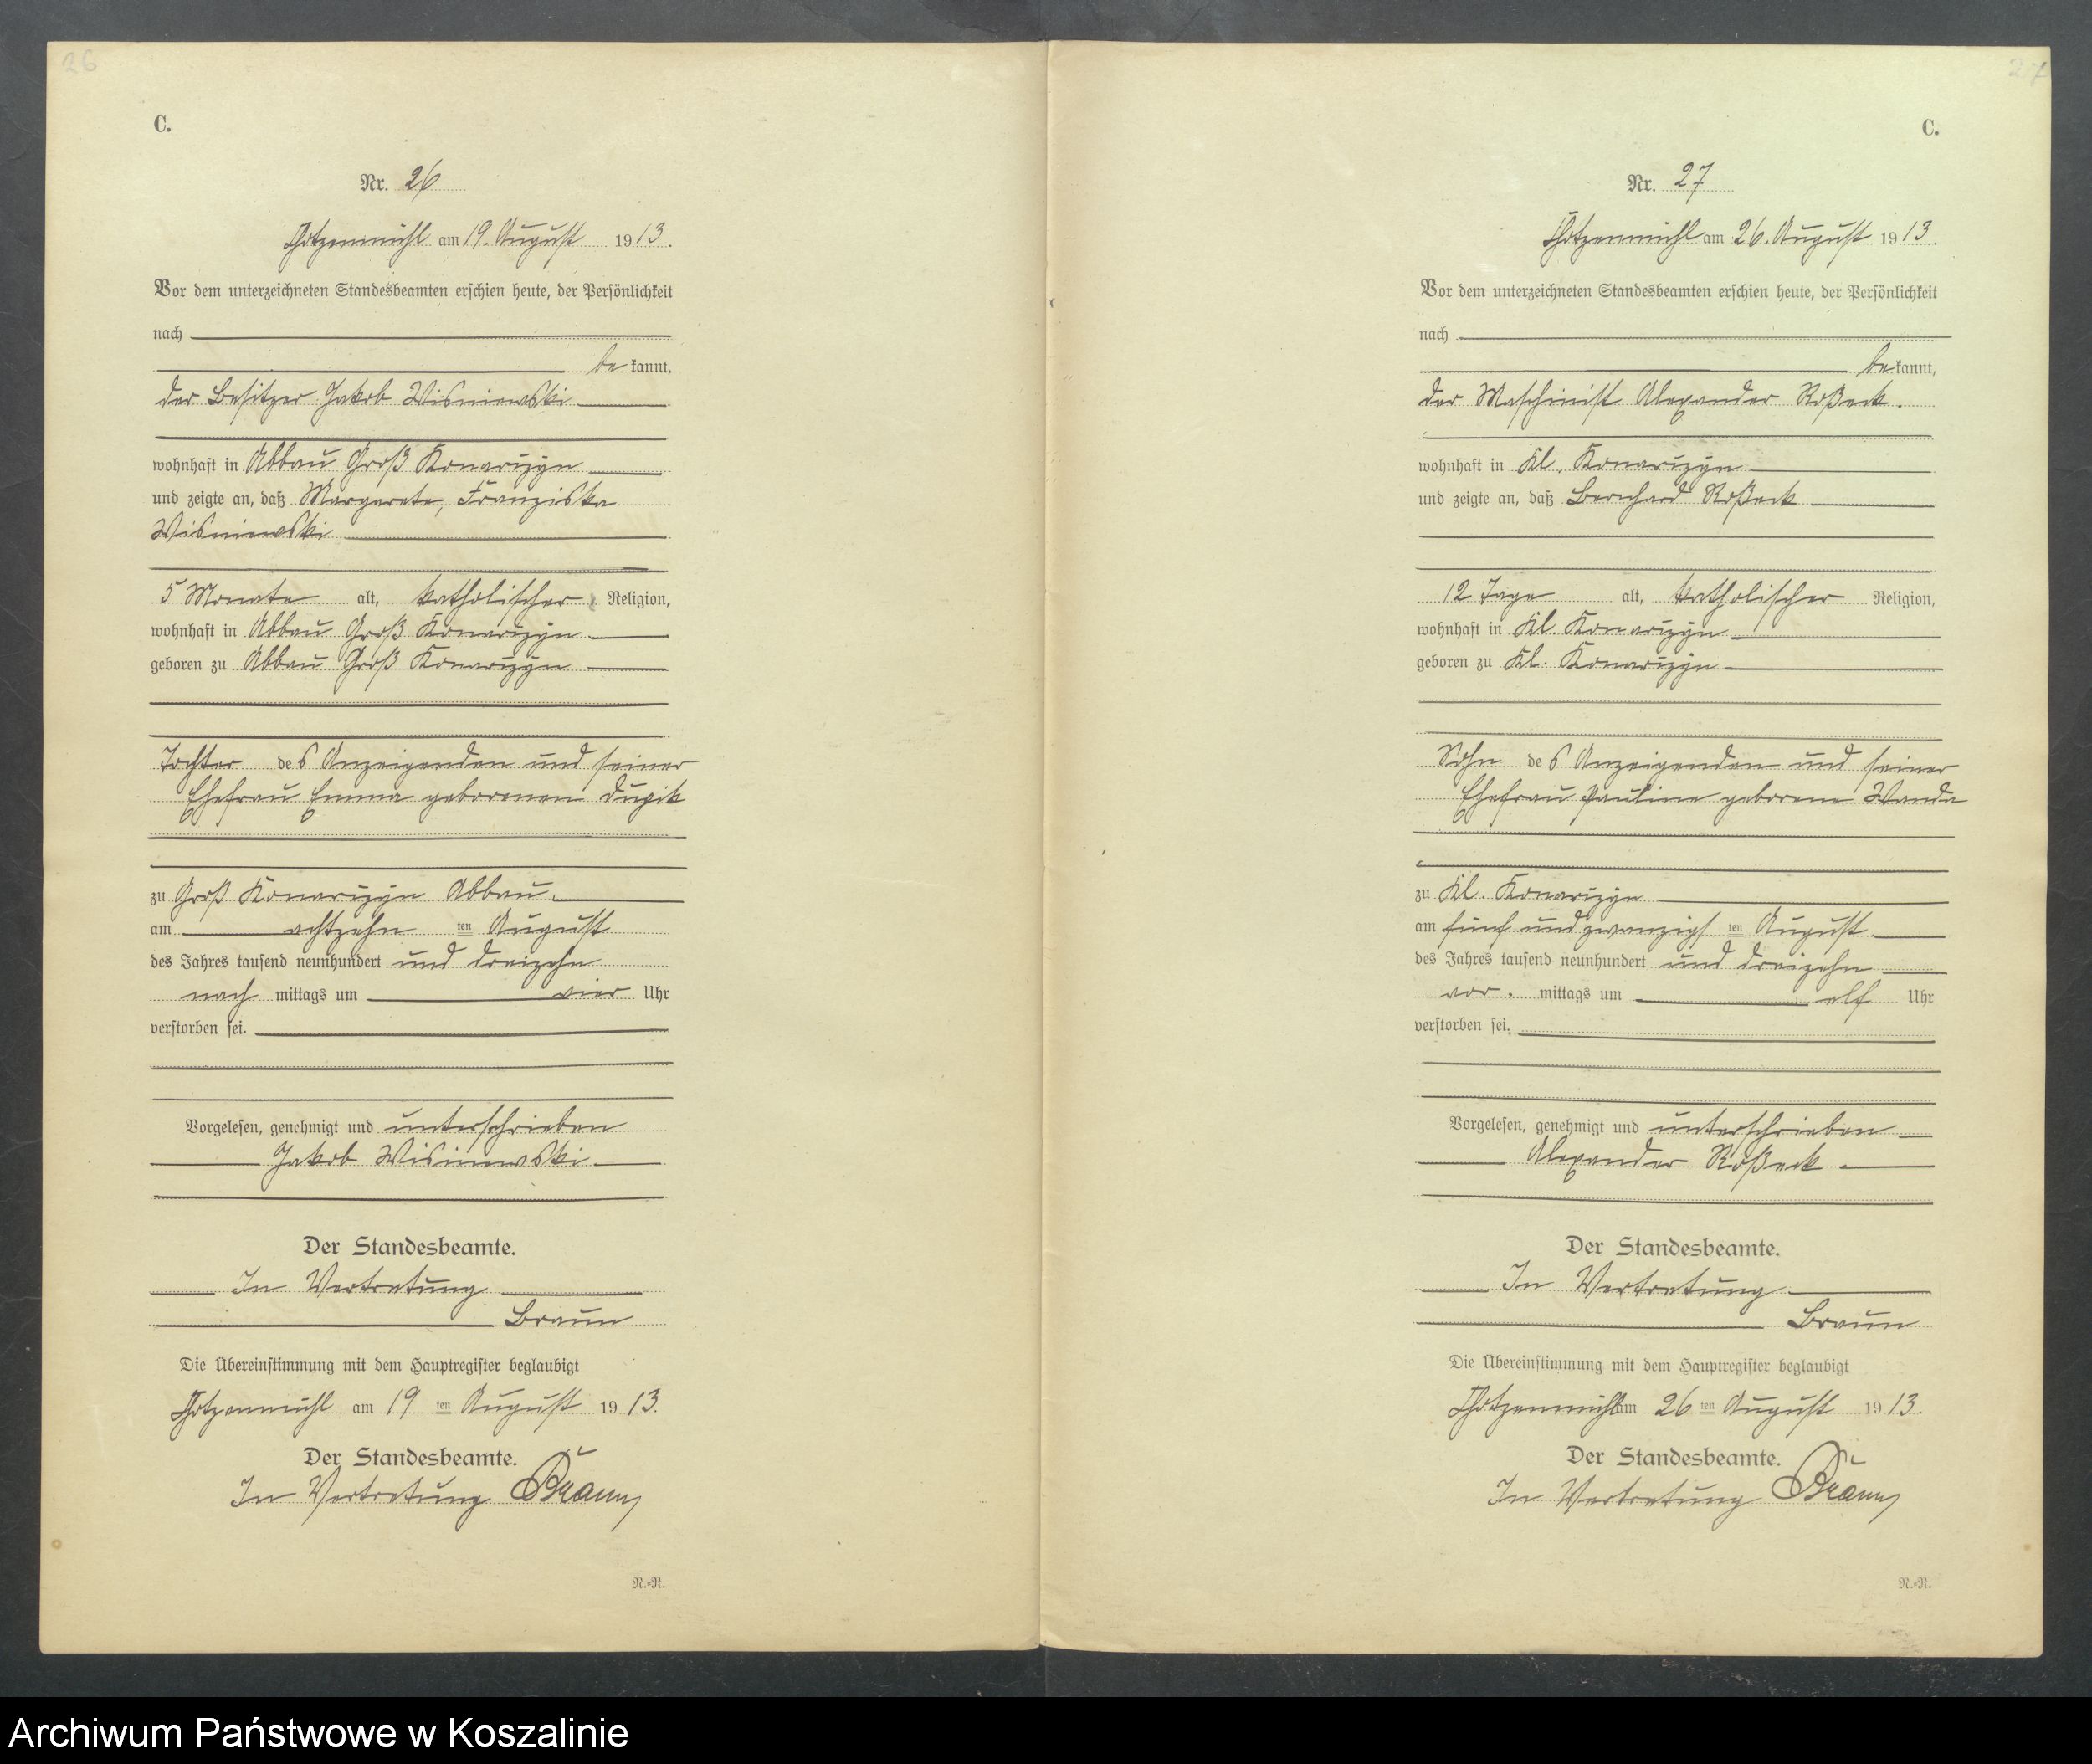 26
C.
Nr. 26
Glotzenmühl am 19. August 1913.
Vor dem unterzeichneten Standesbeamten erschien heute, der Persönlichkeit
nach
be kannt,
der Besitzer Jakob Wisniewski
wohnhaft in Abbau Groß Konarczyn
und zeigte an, daß Margarete, Franziska
Wisniewski
5 Monate alt, katholischer Religion,
wohnhaft in Abbau Groß Konarczyn
geboren zu Abbau Groß Konarczyn
Tochter des Anzeigenden und seiner
Ehefrau Emma geborenen
zu Groß Konarczyn Abbau.
am achtzehn ten August
des Jahres tausend neunhundert und dreizehn
nach mittags um vier Uhr
verstorben sei.
Vorgelesen, genehmigt und unterschrieben
Jakob Wisniewski
Der Standesbeamte.
In Vertretung
Braun
Die Übereinstimmung mit dem Hauptregister beglaubigt
Glotzenmühl am 19 ten August 1913.
Der Standesbeamte.
In Vertretung Braun
N.=R.
27
C.
Nr. 27
Glotzenmühl am 26. August 1913.
Vor dem unterzeichneten Standesbeamten erschien heute, der Persönlichkeit
nach
be kannt,
der Maschinist Alexander Roßeck.
wohnhaft in Kl. Konarczyn
und zeigte an, daß Bernhard Roßeck
12 Tage alt, katholischer Religion,
wohnhaft in Kl. Konarczyn
geboren zu Kl. Konarczyn
Sohn des Anzeigenden und seiner
Ehefrau Pauline geborene Wanda
zu Kl. Konarczyn
am fünf und zwanzigs ten August
des Jahres tausend neunhundert und dreizehn
vor. mittags um elf Uhr
verstorben sei.
Vorgelesen, genehmigt und unterschrieben
Alexander Roßeck
Der Standesbeamte.
In Vertretung
Braun
Die Übereinstimmung mit dem Hauptregister beglaubigt
Glotzenmühl am 26 ten August 1913.
Der Standesbeamte.
In Vertretung Braun
N.=R.
Archiwum Państwowe w Koszalinie